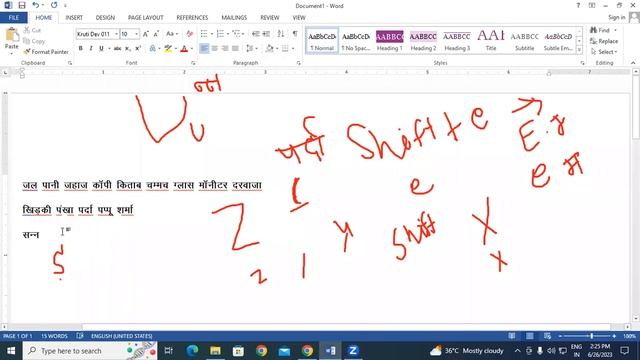 Document1 - Word
FILE HOME INSERT DESIGN PAGE LAYOUT REFERENCES MAILINGS REVIEW VIEW Sign in
Paste Cut Copy Format Painter Kruti Dev 011 10 AaBbCcDc AaBbCcDc AaBbCc AaBbCcC AaBl AaBbCcD AaBbCcDd Find Replace Select
¶ Normal ¶ No Spac... Heading 1 Heading 2 Title Subtitle Subtle Em...
Clipboard Font Paragraph Styles Editing
पर्दा Shift + e E
e
जल पानी जहाज कॉपी किताब चम्मच ग्लास मॉनीटर दरवाजा
खिड़की पंखा पर्दा पप्पू शर्मा
Z Shift X
सन्न
S z x
PAGE 1 OF 1 15 WORDS ENGLISH (UNITED STATES) 100%
Type here to search 36°C Mostly cloudy ENG IN 2:25 PM 6/26/2023